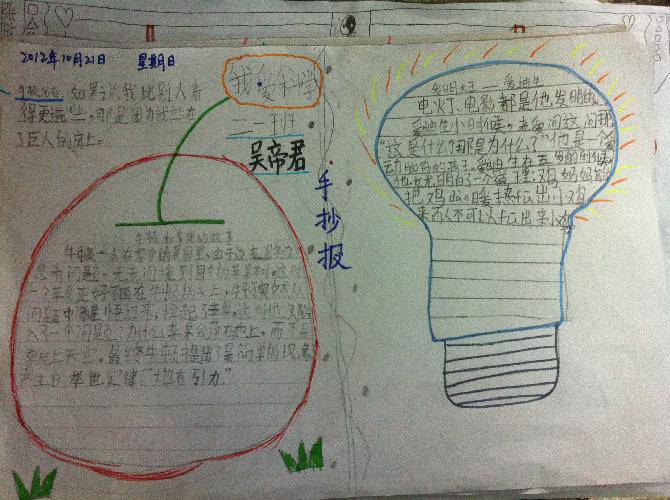 2012年10月21日 星期日
我爱科学
牛顿名言:如果说我比别人看
得更远些,那是因为我站在
了巨人的肩上。
二一班
吴帝君
手抄报
牛顿和苹果的故事
牛顿一人在
思考问题。
一个苹果正好落在牛顿的头上,牛顿突然从
问题中醒悟过来,捡起了苹果。这时他又陷
入了一个问题:为什么苹果会落在地上,而不是
飞上天空。最终牛顿提出了最简单的现象
产生的举世定律:“地有引力”
发明大王——爱迪生
电灯、电影都是他发明的。
爱迪生小时候,老爱问这问那
“这是什么?那是为什么?”他是一个爱
动脑筋的孩子。爱迪生在五岁的时候
他发明白了一个道理:鸡妈妈能
把鸡蛋暖热孵出小鸡
来,人不可以孵出来小鸡